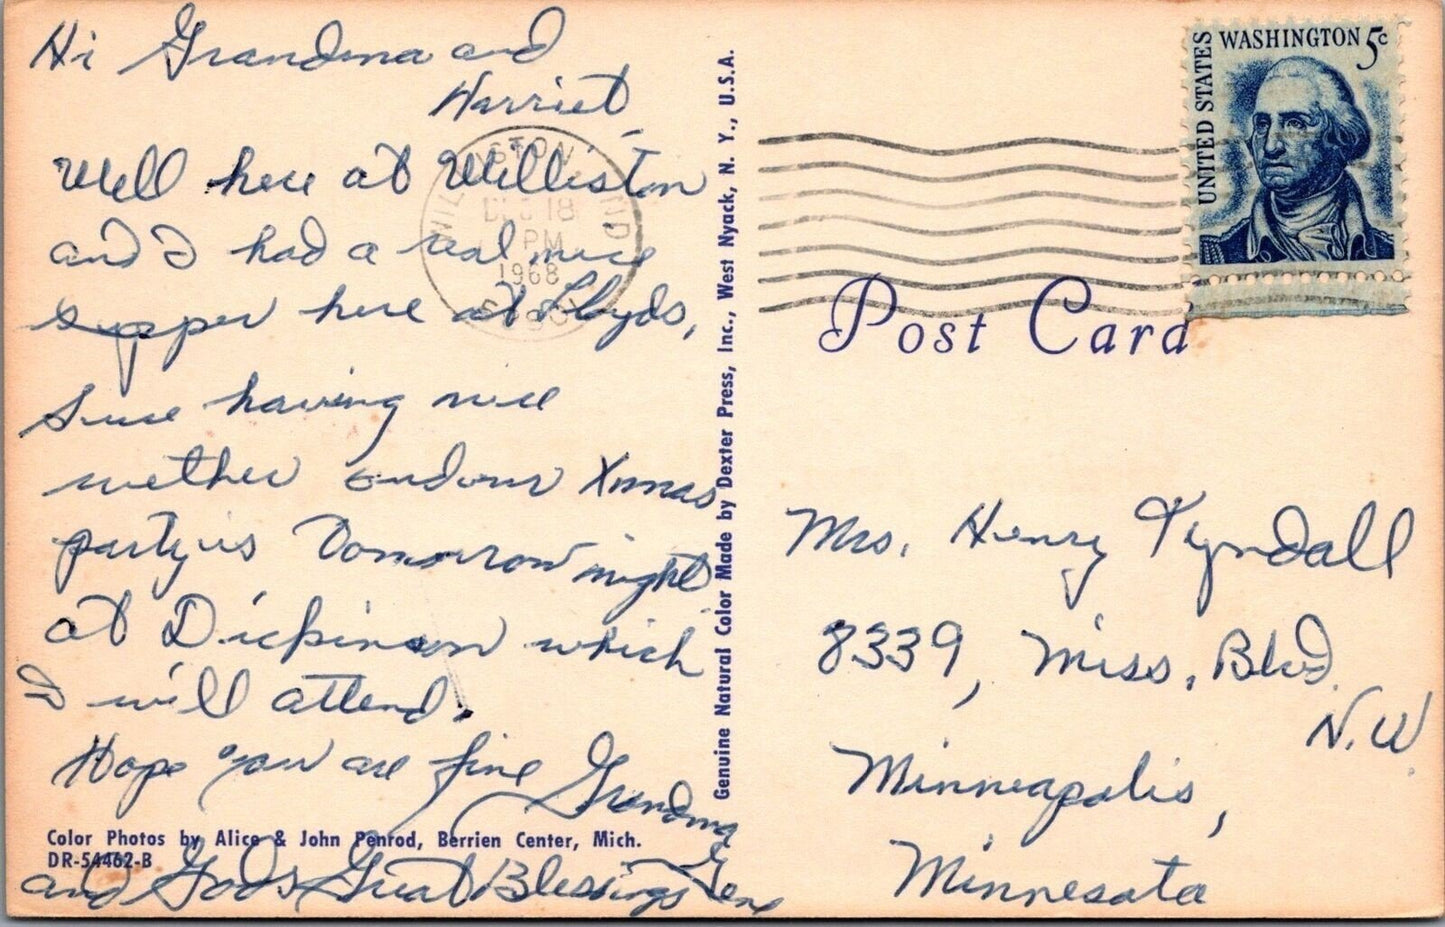 Hi Grandma and
Harriet,
Well here at Williston
and I had a real nice
supper here at Lloyds,
Sure having nice
wether and our Xmas
party is Tomorrow night
at Dickinson which
I will attend.
Hope you are fine Grandma
and Gods Great Blessings Gene
Color Photos by Alice & John Penrod, Berrien Center, Mich.
DR-54462-B
WILLISTON ND
DEC 18
PM
1968
Genuine Natural Color Made by Dexter Press, Inc., West Nyack, N. Y., U.S.A.
UNITED STATES
WASHINGTON 5c
Post Card
Mrs. Henry Tyndall
8339, Miss. Blvd.
N.W.
Minneapolis,
Minnesota